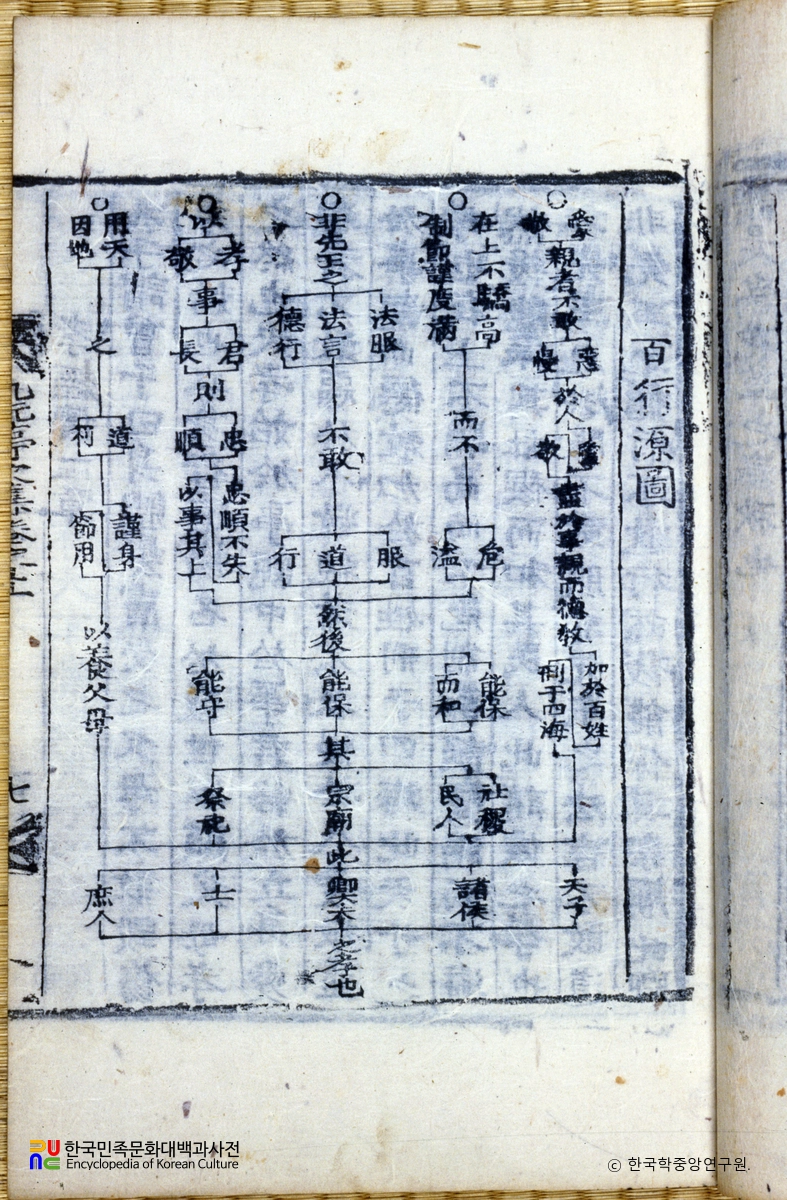 百行源圖
愛
敬
親者不敢
惡
慢
於人
愛
敬
盡於事親而德敎
加於百姓
刑于四海
天子
在上不驕高
制節謹度滿
而不
危
溢
能保
而和
社稷
民人
諸侯
非先王之
法服
法言
德行
不敢
服
道
行
然後
能保
其
宗廟
此
卿大夫
之孝也
以
孝
敬
事
君
長
則
忠
順
忠順不失
以事其上
能守
祭祀
士
用天
因地
之
道
利
謹身
節用
以養父母
庶人
七
한국민족문화대백과사전
Encyclopedia of Korean Culture
© 한국학중앙연구원.